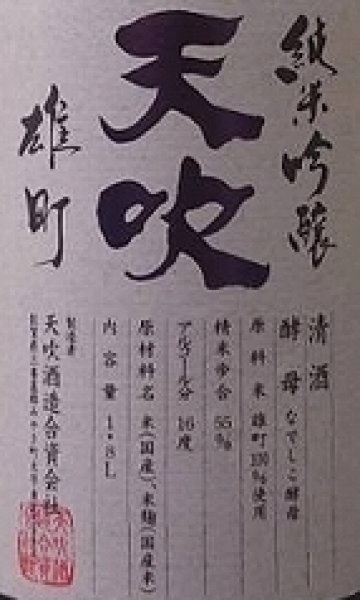 純米吟醸
天吹
雄町
清酒
酵母 なでしこ酵母
原料米 雄町100%使用
精米歩合 55%
アルコール分 16度
原材料名 米(国産)、米麹(国産米)
内容量 1.8L
製造者
天吹酒造合資会社